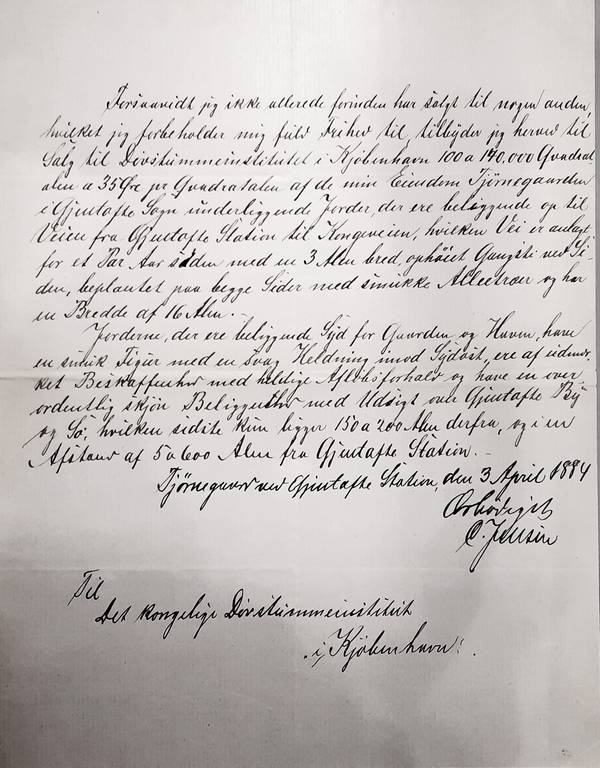 Forsaavidt jeg ikke allerede forinden har solgt til nogen anden,
hvilket jeg forbeholder mig fuld Frihed til, tilbyder jeg herved til
Salg til Døvstummeinstitutet i Kjöbenhavn 100 a 140,000 Qvadrat
alen a 35 Øre pr Qvadratalen af de min Eiendom Tjörnegaarden
i Gjentofte Sogn underliggende Jorder, der ere beliggende op til
Veien fra Gjentofte Station til Kongeveien, hvilken Vei er anlagt
for et Par Aar siden med en 3 Alen bred, ophöiet Gangsti ved Si-
den, beplantet paa begge Sider med smukke Alleetræer og har
en Bredde af 16 Alen.-
Jorderne, der ere beliggende Syd for Gaarden og Haven, have
en smuk Figur med en svag Heldning imod Sydöst, ere af udmær-
ket Beskaffenhed med heldige Aflöbsforhold og have en over-
ordentlig skjön Beliggenhed med Udsigt over Gjentofte By
og Sö, hvilken sidste kun ligger 150 a 200 Alen derfra, og i en
Afstand af 5 a 600 Alen fra Gjentofte Station.-
Tjörnegaard ved Gjentofte Station, den 3 April 1884
Ærbödigst
C. Jensen
Til
Det kongelige Døvstummeinstitut
i Kjöbenhavn.